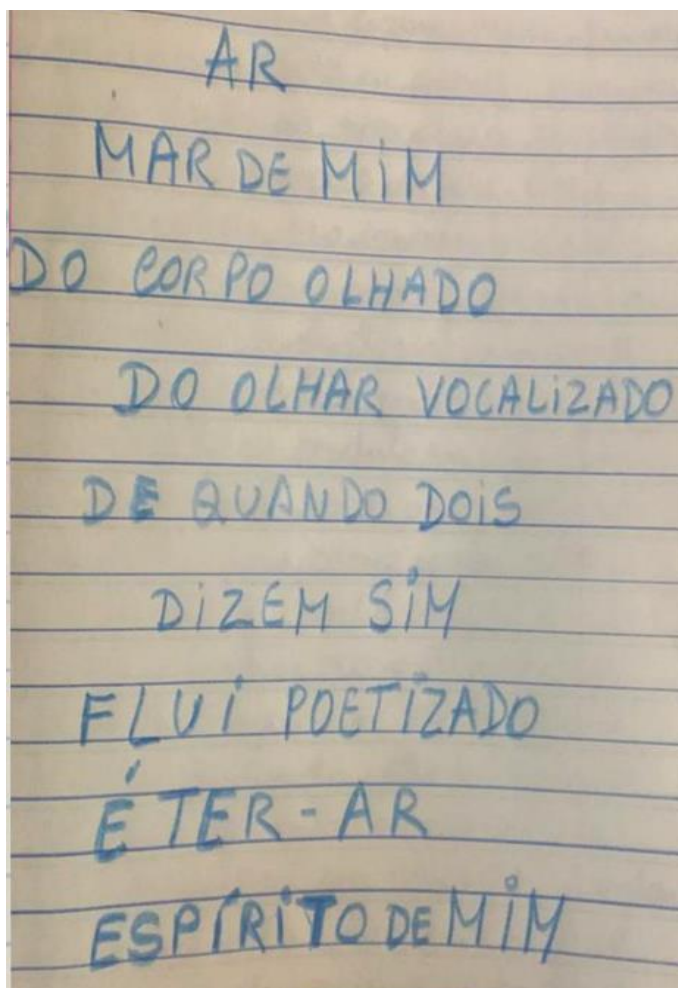 AR
MAR DE MIM
DO CORPO OLHADO
DO OLHAR VOCALIZADO
DE QUANDO DOIS
DIZEM SIM
FLUI POETIZADO
É TER-AR
ESPÍRITO DE MIM